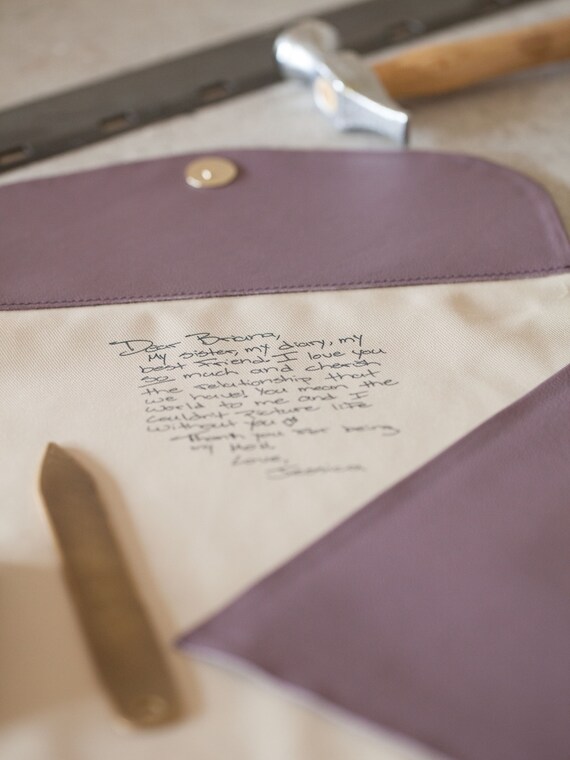 Dear Briana,
My sister, my diary, my
best friend. I love you
so much and cherish
the relationship that
we have! You mean the
world to me and I
couldn't picture life
without you
Thank you for being
my MOH
Love,
Jessica